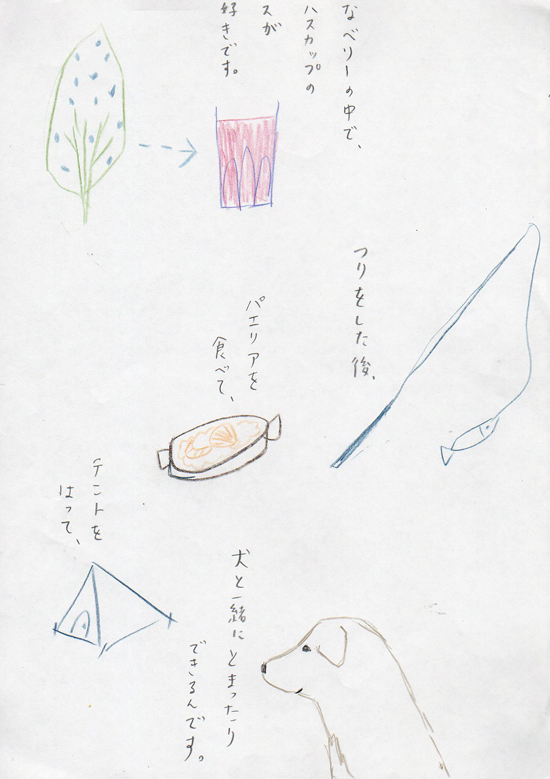 なベリーの中で、
ハスカップの
スが
好きです。
つりをした後、
パエリアを
食べて、
テントを
はって、
犬と一緒に とまったり
できるんです。